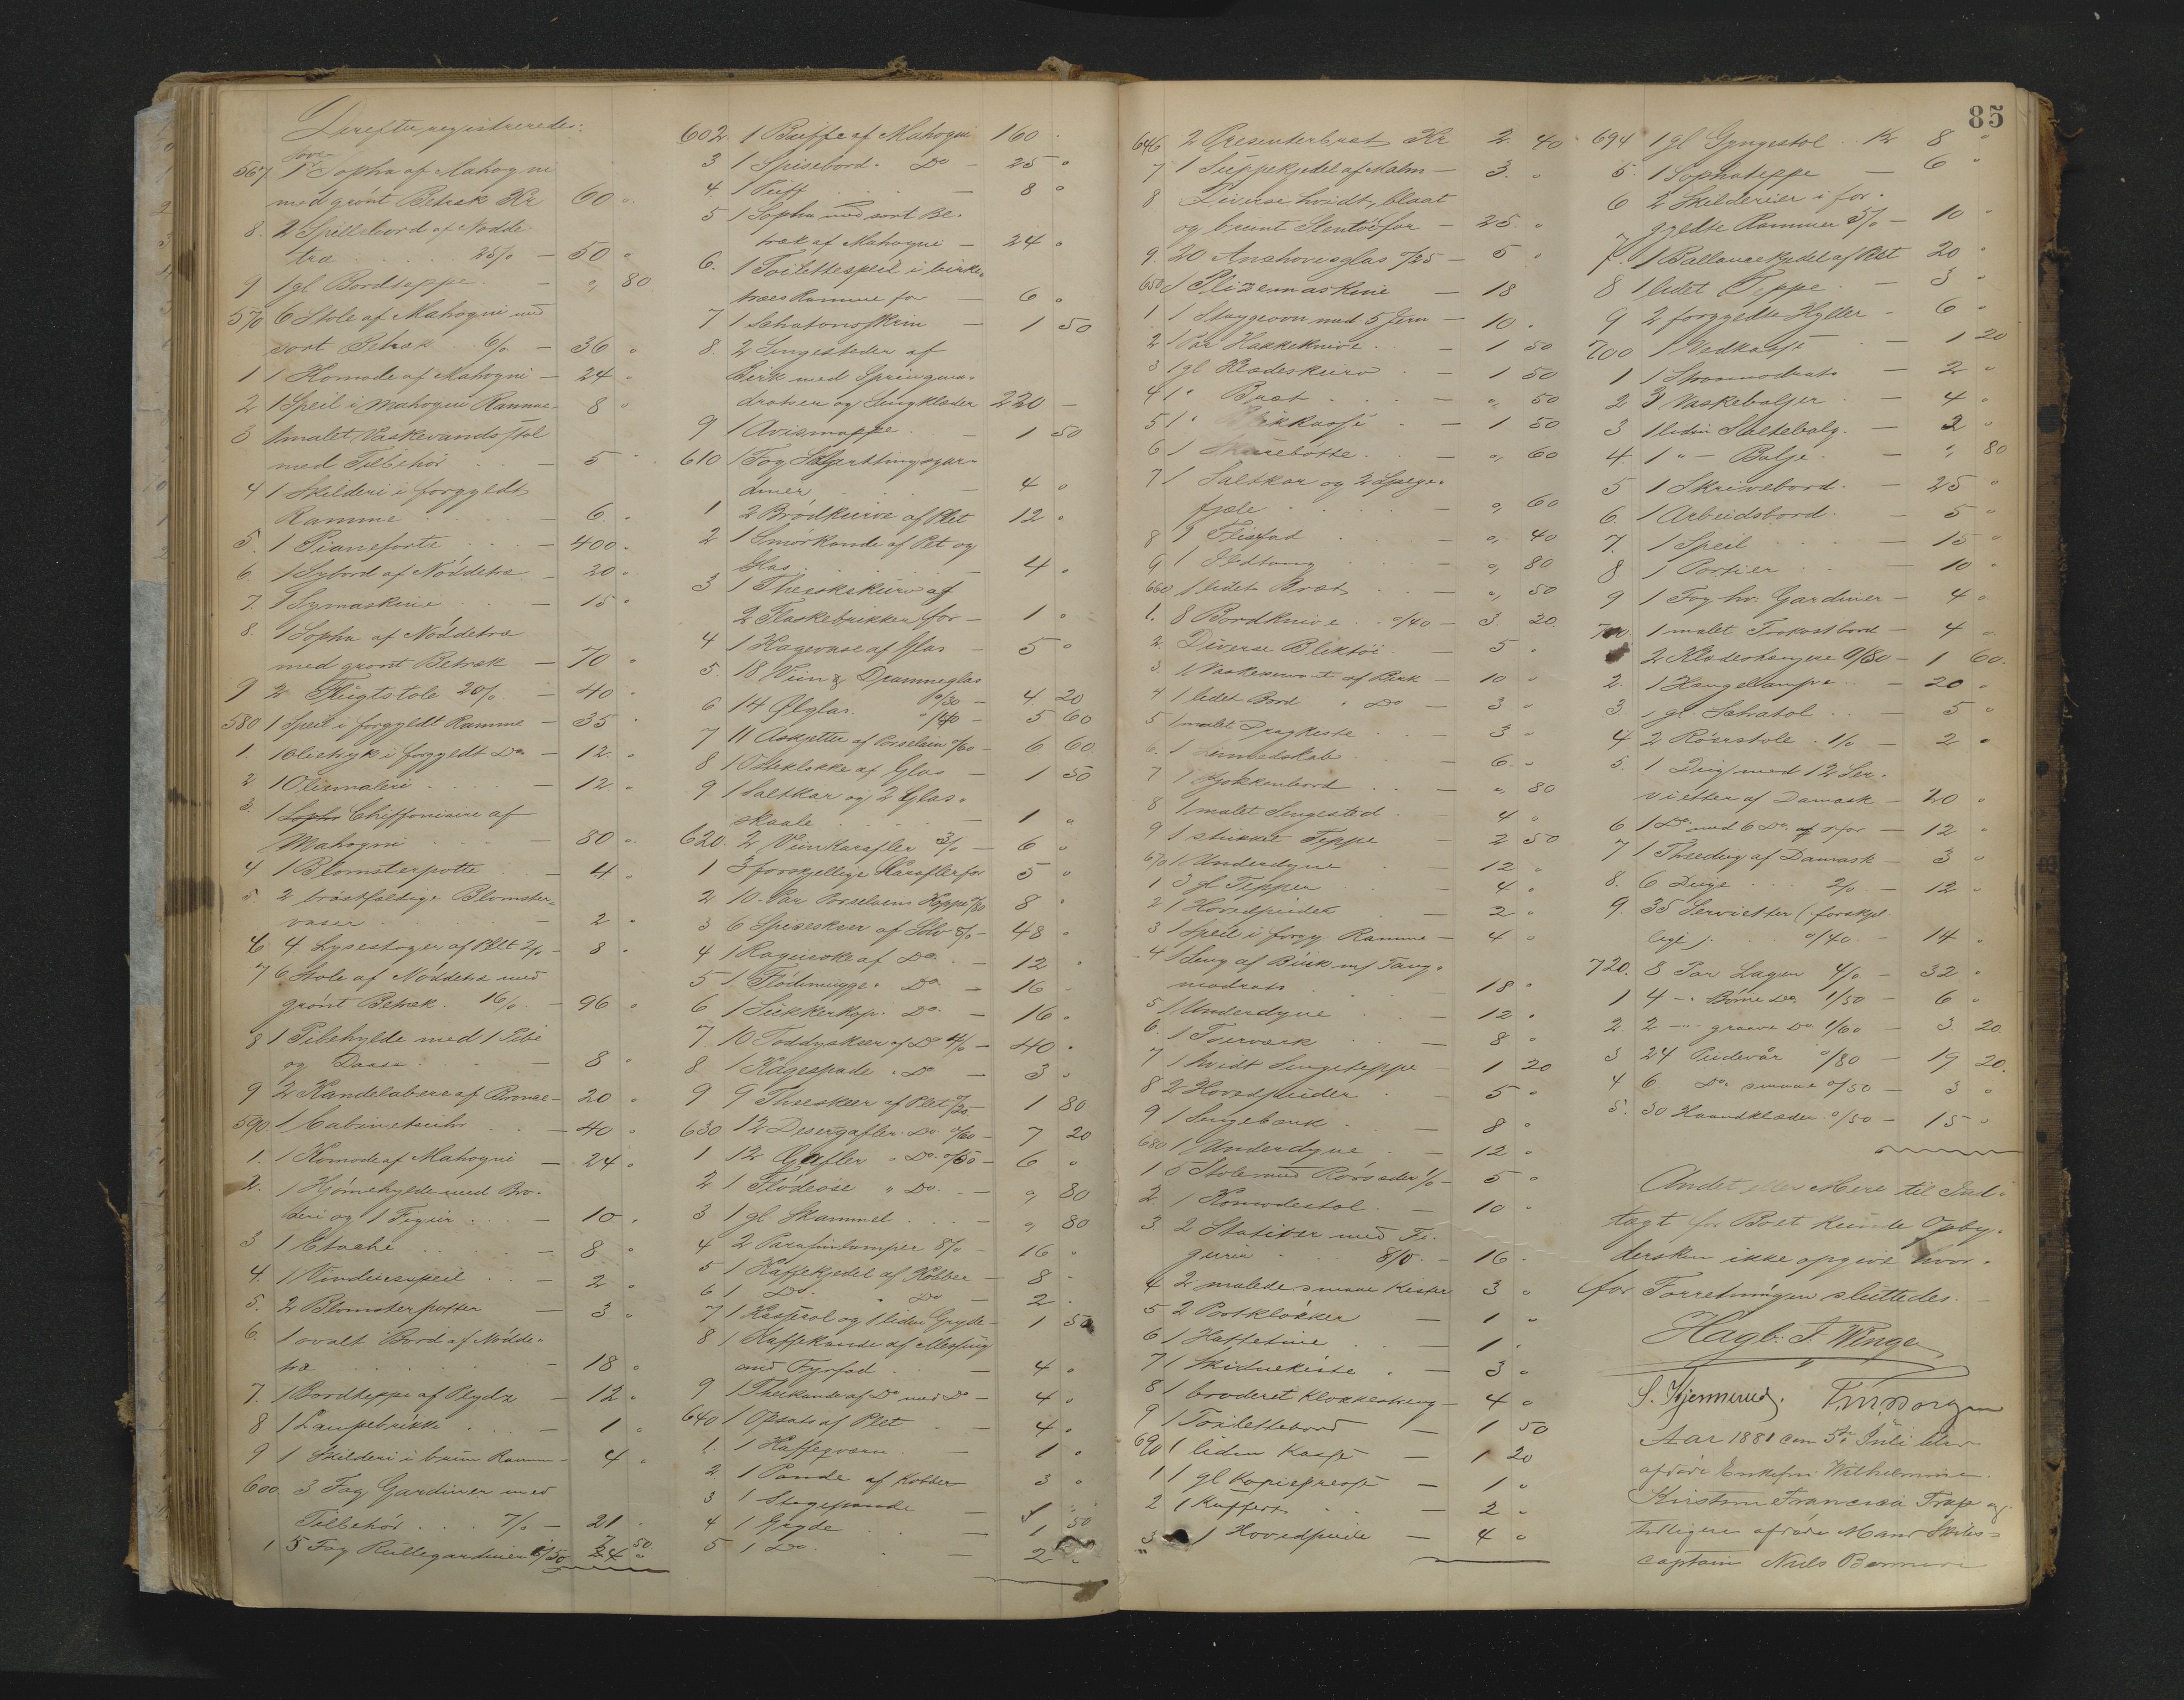 Derefter registreredes:
567 1 Sopha af Mahogni
med grønt Betræk Kr 60 "
8. 2 Spillebord af Nødde-
træ 25/0 — 50 "
9 1 gl Bordteppe — " 80
570 6 Stole af Mahogni med
sort Betræk 6/0 — 36 "
1 1 Komode af Mahogni — 24 "
2 1 Speil i Mahogni Ramme — 8 "
3 1 malet Vaskevandsstol
med Tilbehør — 5 "
4 1 Skilderi i forgyldt
Ramme — 6 "
5. 1 Pianoforte — 400 "
6. 1 Sybord af Nøddetræ — 20 "
7. 1 Symaskine — 15 "
8. 1 Sopha af Nøddetræ
med grønt Betræk — 70 "
9 2 Flugtstole 20/0 — 40 "
580 1 Speil i forgyldt Ramme — 35 "
1. 1 Olietryk i forgyldt Do — 12 "
2 1 Oliemaleri — 12 "
3. 1 Sopha Chiffoniaire af
Mahogni — 80 "
4 1 Blomsterpotte — 4 "
5. 2 brøstfældige Blomster-
vaser — 2 "
6 4 Lysestager af Plet 2/0 — 8 "
7 6 Stole af Nøddetræ med
grønt Betræk. 16/0 — 96 "
8 1 Pibehylde med 1 Pibe
og Daase — 8 "
9 2 Kandelabere af Bronce — 20 "
590. 1 Cabinetsuhr — 40 "
1. 1 Komode af Mahogni — 24 "
2. 1 Hjørnehylde med Bro-
deri og 1 Figur — 10 "
3 1 Etache — 8 "
4. 1 Vinduesspeil — 2 "
5. 2 Blomsterpotter — 3 "
6. 1 ovalt Bord af Nødde-
træ — 18 "
7. 1 Bordteppe af Plyds — 12 "
8 1 Lampebrikke — 1 "
9 1 Skilderi i bruun Ramme — 4 "
600 3 Fag Gardiner med
Tilbehør 7/0 — 21 "
1 5 Fag Rullegardiner 1/50 7 50
602. 1 Buffe af Mahogni 160 "
3 1 Spisebord " Do — 25 "
4. 1 Puff — 8 "
5 1 Sopha med sort Be-
træk af Mahogni — 24 "
6. 1 Toilettespeil i birke-
træes Ramme for — 6 "
7 1 Schatonsskrin — 1 50
8. 2 Sengesteder af
Birk med Springma-
dratser og Sengklæder 220 —
9 1 Avismappe — 1 50
610 1 Fag
diner — 4 "
1 2 Brødkurve af Plet 12 "
2 1 Smørkande af Plet og
Glas — 4 "
3 1 Theeskekurv af
2 Flaskebrikker for — 1 "
4 1 Kagevase af Glas — 5 "
5. 18 Viin & Dramméglas
"/30 — 4. 20
6 14 Ølglas. "/40 — 5 60
7 11 Asketter af Porselain "/60 — 6 60
8 1 Osteklokke af Glas — 1 50
9. 1 Saltkar og 2 Glas-
skaale — 1 "
620. 2 Viinkarafler 3/0 — 6 "
1 3 forskjellige Karafler for 5 "
2 10. Par Porselæns Koppe "/80 8 "
3 6 Spiseskeer af Sølv 8/0 — 48 "
4 1 Raguuske af Do — 12 "
5 1. Flødemugge " Do — 16 "
6 1 Sukkerkop " Do — 16 "
7. 10 Toddyskeer af Do 4/0 — 40 "
8. 1 Kagespade " Do — 3 "
9 9 Theeskeer af Plet "/20 — 1 80
630 12 Desertgafler. Do "/60 — 7 20
1 12 Gafler " Do "/50 — 6 "
2 1 Flødeøse " Do — " 80
3 1 gl Skammel — " 80
4 2 Parafinlamper 8/0 — 16 "
5 1 Kaffekjedel af Kobber — 8 "
6 1 Do " Do — 2 "
7 1 Kasserol og 1 liden Gryde — 1 50
8 1 Kaffekande af Messing
med Fyrfad — 4 "
9 1 Theekande af Do med Do — 4 "
640 1 Opsats af Plet — 4 "
1. 1 Kaffeqværn — 1 "
2. 1 Pande af Kobber 3 "
3 1 Stegepande — 1 50
4 1 Gryde — 1
5 1 Do — 2 "
85
646 2 Presenterbret Kr 2 40
7 1 Suppekjedel af Malm — 3 "
8 Diverse hvidt, blaat
og bruunt Stentøi for — 25 "
9 20 Anshovisglas "/25 — 5 "
650 1 Plisemaskine — 18
1 1 Strygeovn med 5 Jern — 10 "
2 1 Par Hakkeknive — 1 50
3 1 gl Klædeskurv — 1 50
4 1 " Bræt — " 50
5 1 " — 1 50
6 1 Skurebøtte — " 60
7 1 Saltkar og 2 Spege-
fjæle — " 60
8 9 Flisfad — " 40
9 1 Ildtang — " 80
660 1 lidet Bræt — " 50
1. 8 Bordknive "/40 — 3. 20
2. Diverse Bliktøi — 5 "
3. 1 Vaskeservant af Birk — 10 "
4 1 lidet Bord " Do — 3 "
5 1 malet Dragkiste — 3 "
6. 1 Linnedskab — 6 "
7 1 Kjøkkenbord — " 80
8 1 malet Sengested — 4 "
9 1 strikket Teppe — 2 50
670 1 Underdyne — 12 "
1 3 gl Tepper — 4 "
2 1 Hovedpude — 2 "
3 1 Speil i forg. Ramme — 4 "
4 1 Seng af Birk m/ Tang-
madrats — 18 "
5 1 Underdyne — 12 "
6. 1 Overværk — 8 "
7 1 hvidt Sengeteppe — 1 20
8 2 Hovedpuder — 5 "
9 1 Sengebænk — 8 "
680 1 Underdyne — 12 "
1 5 Stole med Rørsæder 1/0 — 5 "
2 1 Komodestol — 10 "
3. 2 Statiter med Fi-
gurer 8/0 — 16 "
4 2 malede smaae Kister 3 "
5 2 Postklokker — 1 "
6 1 Hattetine — 1 "
7 1 Skidnekiste — 3 "
8 1 broderet Klokkestreng — 4 "
9 1 Toilettebord — 1 50
690 1 liden Kasse — 1 20
1 1 gl Kopiepresse — 1 "
2 1 Kuffert — 2 "
3 1 Hovedpude — 4 "
694 1 gl Gyngestol Kr 8 "
5. 1 Sophateppe — 6 "
6 2 Skilderier i for-
gyldte Rammer 5/0 — 10 "
7. 1 Ballancekjedel af Plet 20 "
8 1 lidet Teppe — 3 "
9 2 forgyldte Hyller — 6 "
700 1 Vedkasse — 1 20
1 1 Straamadrats — 2 "
2 3 Vaskebaljer — 4 "
3 1 liden Saltebalg — 2 "
4. 1 " — Balje — " 80
5 1 Skrivebord — 25 "
6. 1 Arbeidsbord — 5 "
7. 1 Speil — 15 "
8. 1 Portier — 10 "
9 1 Fag hv. Gardiner — 4 "
710. 1 malet Frokostbord — 4 "
2 Klædeshængere "/80 — 1 60.
2. 1 Hængelampe — 20 "
3. 1 gl Schatol — 5 "
4 2 Rørstole 1/0 — 2 "
5. 1 Dug med 12 Ser-
vietter af Damask — 20 "
6 1 Do med 6 Do for — 12 "
7 1 Theedug af Damask — 3 "
8. 6 Duge 2/0 — 12 "
9. 35 Servietter (forskjel-
lige) "/40 — 14 "
720. 8 Par Lagen 4/0 — 32 "
1 4 — " Børne Do 1/50 — 6 "
2. 2 — " graave Do 1/60 — 3. 20.
3 24 Pudevår "/80 — 19 20.
4 6 Do smaae "/50 — 3 "
5. 30 Haandklæder "/50 — 15 "
Andet eller Mere til Ind-
tægt for Boet kunde Opby-
dersken ikke opgive hvor-
for Forretningen sluttedes.
Hagb. T. Winge
S. Hjermerud.
Aar 1881 den 5te Juli blev
afdøde Enkefru Wilhelmine
Kirstine Francisca Trap og
tidligere afdøde Mand Skibs-
captain Niels